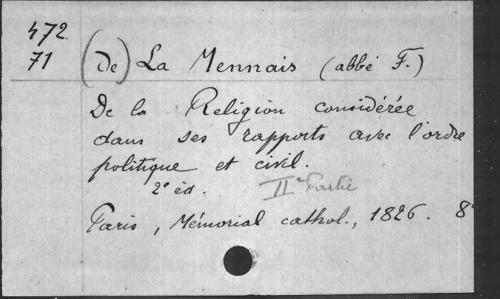 472
71
(de) La Mennais (abbé F.)
De la Religion considérée
dans ses rapports avec l'ordre
politique et civil.
2e éd. IIe Partie
Paris, Mémorial cathol., 1826. 8°